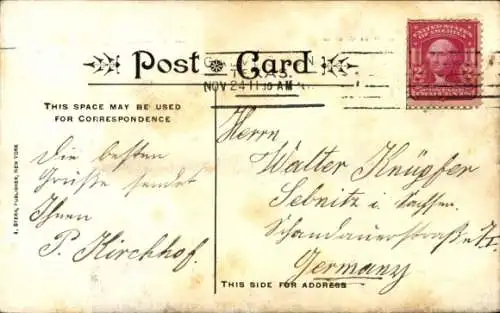 Post Card
UNITED STATES OF AMERICA
TEXAS.
NOV 24 11 30 AM
THIS SPACE MAY BE USED
FOR CORRESPONDENCE
Die besten
Grüße sendet
Ihnen
P. Kirchhof.
Herrn
Walter Knüpfer
Sebnitz i. Sachsen.
Schandauerstraße
Germany
THIS SIDE FOR ADDRESS
PUBLISHER, NEW YORK